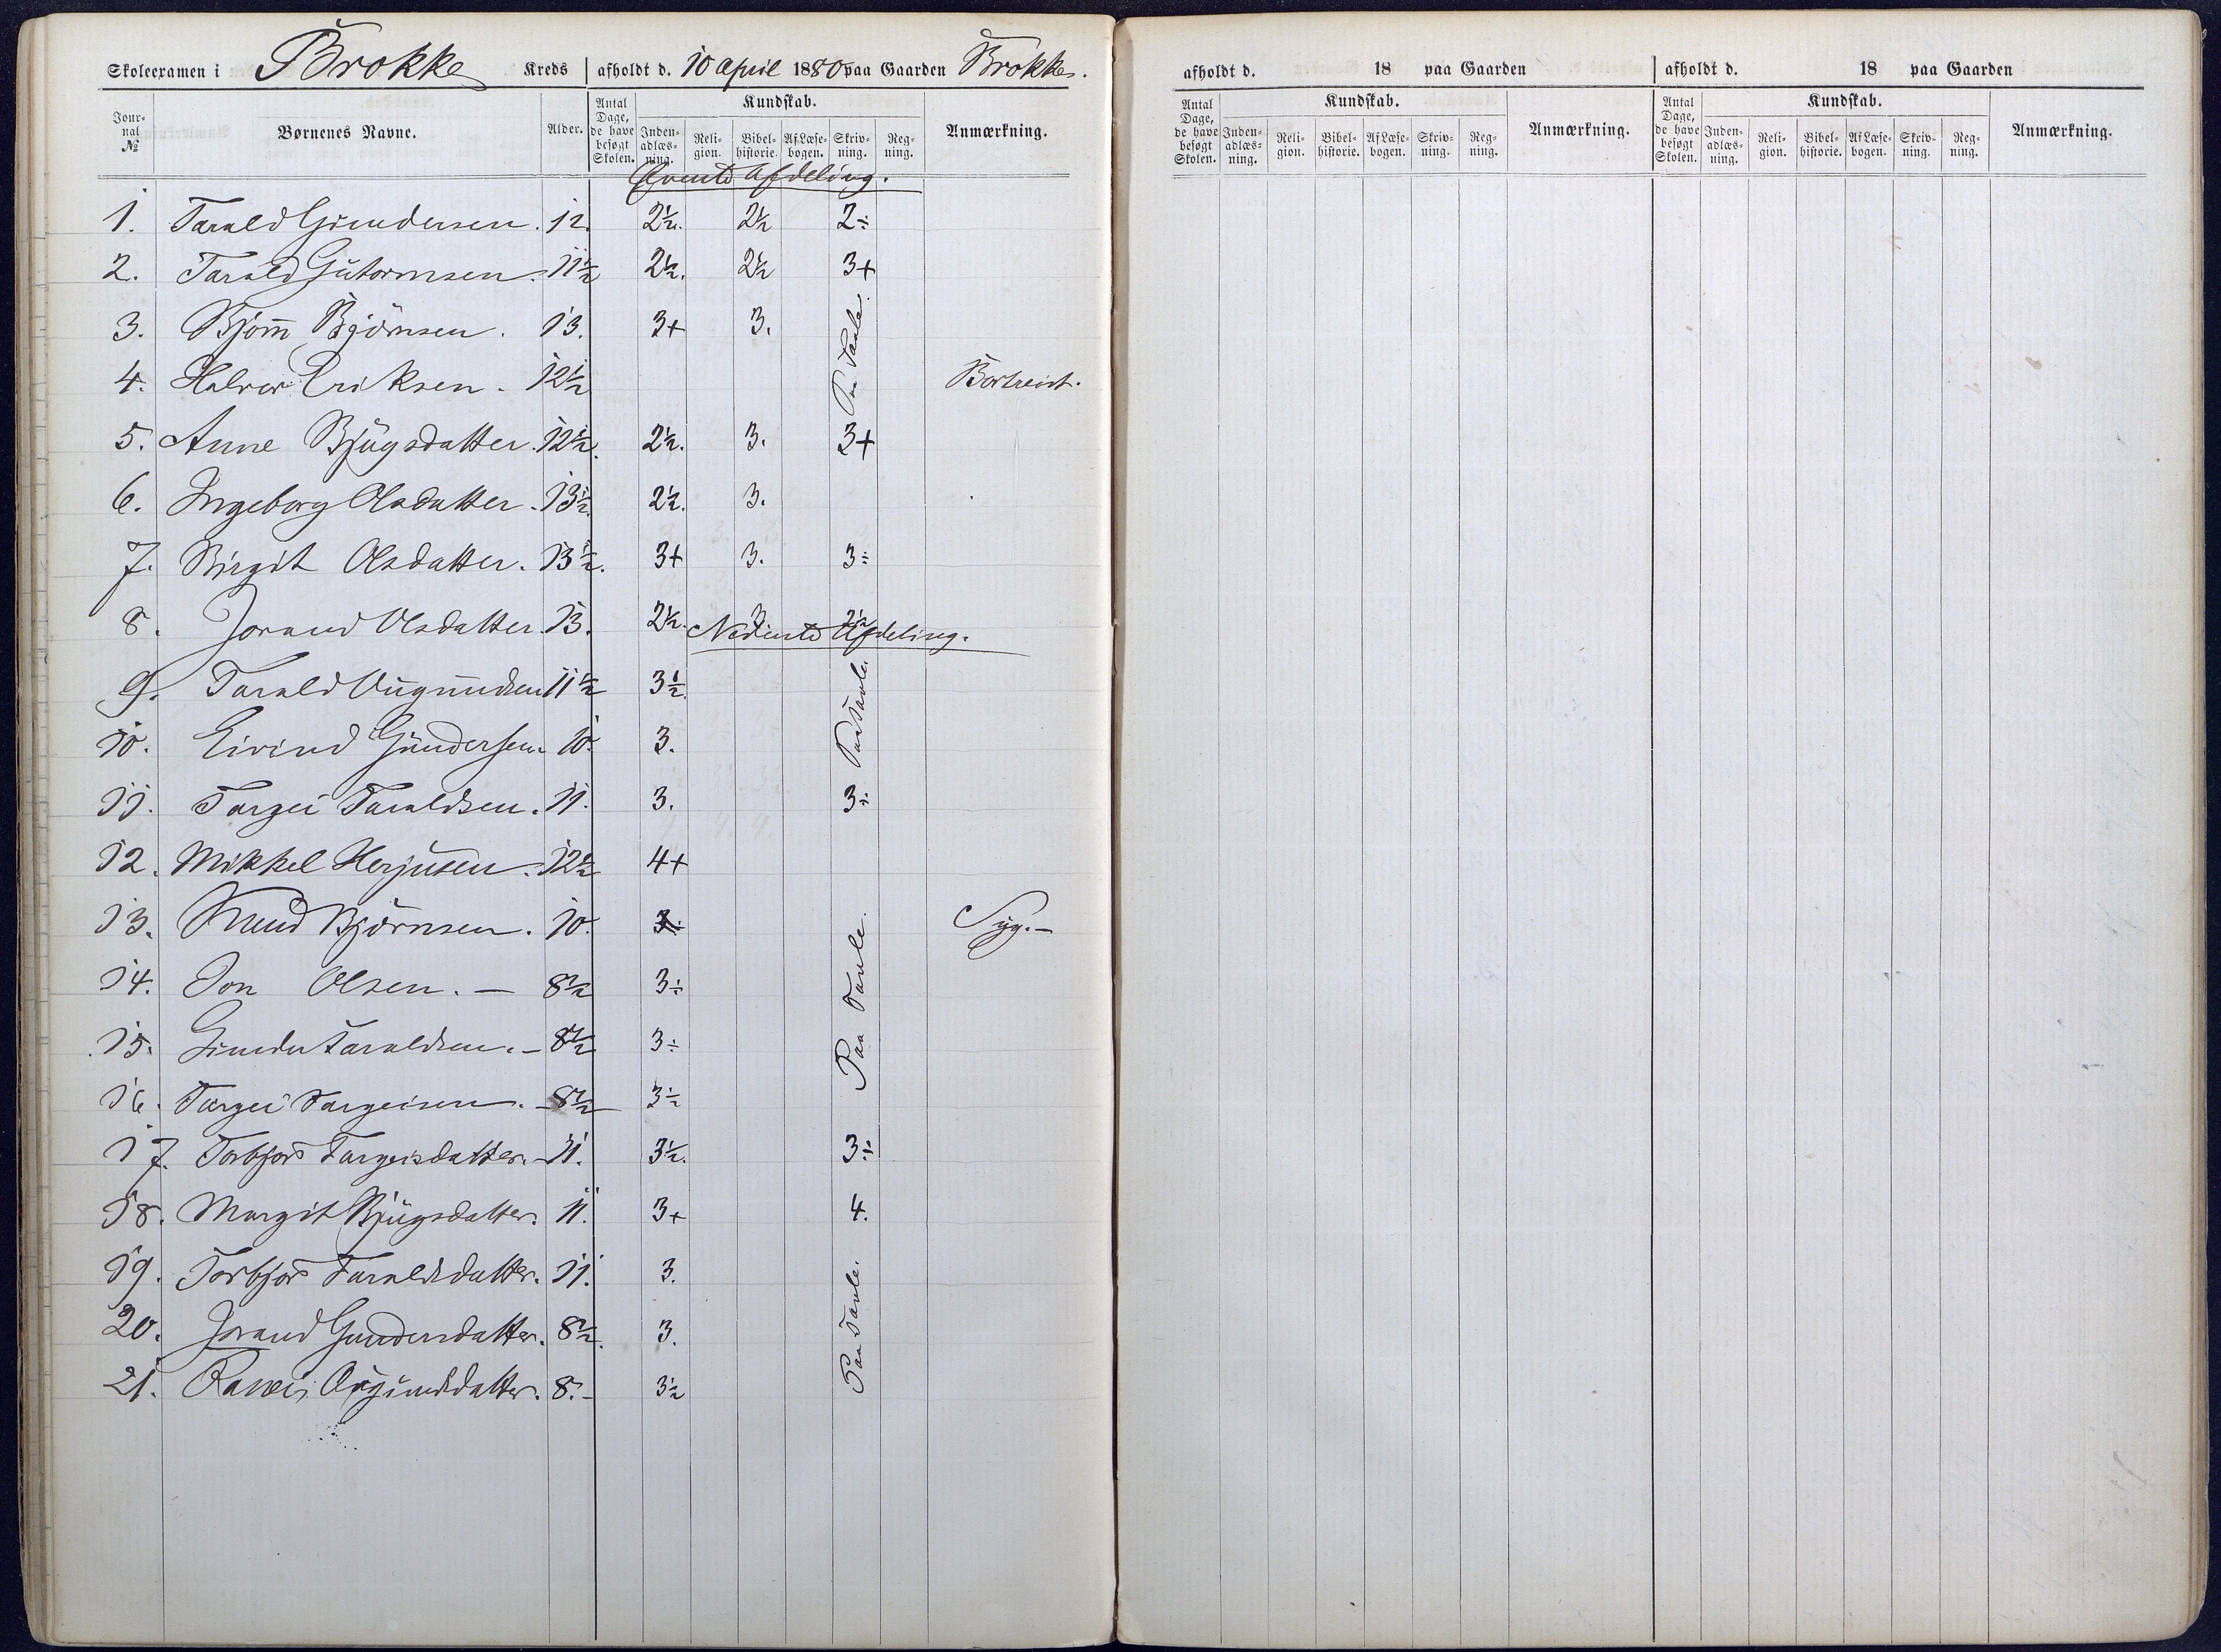 Skoleexamen i Brokke Kreds afholdt d. 10 april 1880 paa Gaarden Brokke.
Jour-nal № Børnenes Navne. Alder. Antal Dage, de have besøgt Skolen. Kundskab. Inden-adlæs-ning. Reli-gion. Bibel-historie. Af Læse-bogen. Skriv-ning. Reg-ning. Anmærkning.
Øverste Afdeling.
1. Tarald Gundersen. 12. 2½. 2½ 2÷
2. Tarald Gutormsen. 11½ 2½. 2½ 3+
3. Bjørn Bjørnsen. 13. 3+ 3. Paa Tavle.
4. Halvor Eriksen. 12½ Bortreist.
5. Anne Bjugsdatter. 12½. 2½. 3. 3+
6. Ingeborg Olsdatter. 13½. 2½. 3.
7. Birgit Olsdatter. 13½. 3+ 3. 3÷
8. Jorand Olsdatter. 13. 2½. 3 2½
Nederste Afdeling.
9. Tarald 11½ 3½.
10. Eivind Gundersen. 10. 3. Paa Tavle.
11. Targei Taraldsen. 11. 3. 3÷
12. Mikkel Herjusen. 12½ 4+
13. Knud Bjørnsen. 10. 3÷ Syg. –
14. Jon Olsen. – 8½ 3÷
15. Gunder Taraldsen. – 8½ 3÷ Paa Tavle.
16. Targei Targeisen. – 8½ 3½
17. Torbjør Targeisdatter. – 11. 3½. 3÷
18. Margit Bjugsdatter. 11. 3+ 4.
19. Torbjør Taraldsdatter. 11. 3.
20. Jorand Gundersdatter. 8½. 3. Paa Tavle.
21. 8. – 3½
afholdt d. 18 paa Gaarden afholdt d. 18 paa Gaarden
Antal Dage, de have besøgt Skolen. Kundskab. Inden-adlæs-ning. Reli-gion. Bibel-historie. Af Læse-bogen. Skriv-ning. Reg-ning. Anmærkning. Antal Dage, de have besøgt Skolen. Kundskab. Inden-adlæs-ning. Reli-gion. Bibel-historie. Af Læse-bogen. Skriv-ning. Reg-ning. Anmærkning.